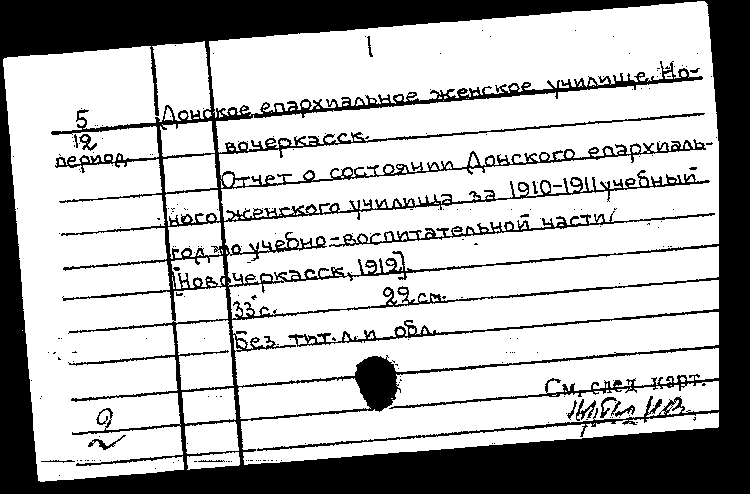 1
5
12
период.
Донское епархиальное женское училище. Но-
вочеркасск.
Отчет о состоянии Донского епархиаль-
ного женского училища за 1910-1911 учебный
год, по учебно-воспитательной части
[Новочеркасск, 1912].
33 с. 22 см.
Без тит. л. и обл.
См. след. карт.
2